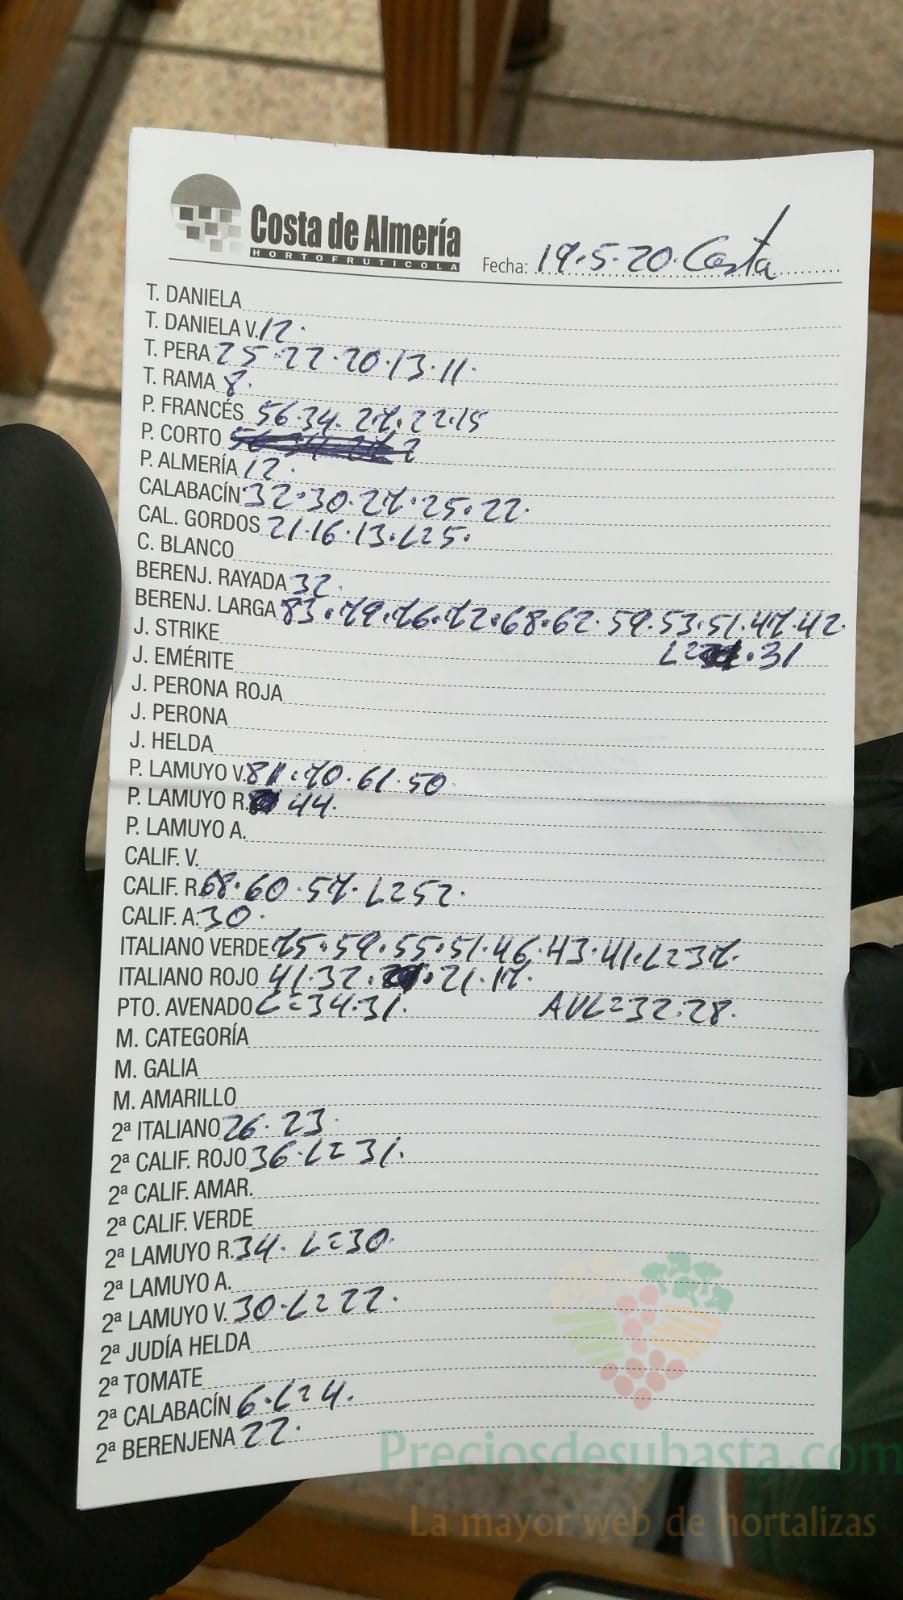 Costa de Almería
HORTOFRUTICOLA
Fecha: 19.5.20. Costa
T. DANIELA
T. DANIELA V. 12.
T. PERA 25.22.20.13.11.
T. RAMA 8.
P. FRANCÉS 56.34.27.22.15
P. CORTO
P. ALMERÍA 12.
CALABACÍN 32.30.27.25.22.
CAL. GORDOS 21.16.13.L25.
C. BLANCO
BERENJ. RAYADA 32.
BERENJ. LARGA 83.79.76.72.68.62.59.53.51.47.42.
J. STRIKE L= .31
J. EMÉRITE
J. PERONA ROJA
J. PERONA
J. HELDA
P. LAMUYO V. 81.70.61.50.
P. LAMUYO R. 44.
P. LAMUYO A.
CALIF. V.
CALIF. R. 68.60.57.L=52.
CALIF. A. 30.
ITALIANO VERDE 75.59.55.51.46.43.41.L=37.
ITALIANO ROJO 41.32. .21.17.
PTO. AVENADO L=34.31. AVL=32.28.
M. CATEGORÍA
M. GALIA
M. AMARILLO
2ª ITALIANO 26.23.
2ª CALIF. ROJO 36.L=31.
2ª CALIF. AMAR.
2ª CALIF. VERDE
2ª LAMUYO R. 34. L=30.
2ª LAMUYO A.
2ª LAMUYO V. 30.L=22.
2ª JUDÍA HELDA
2ª TOMATE
2ª CALABACÍN 6.L=4.
2ª BERENJENA 22.
Preciosdesubasta.com
La mayor web de hortalizas